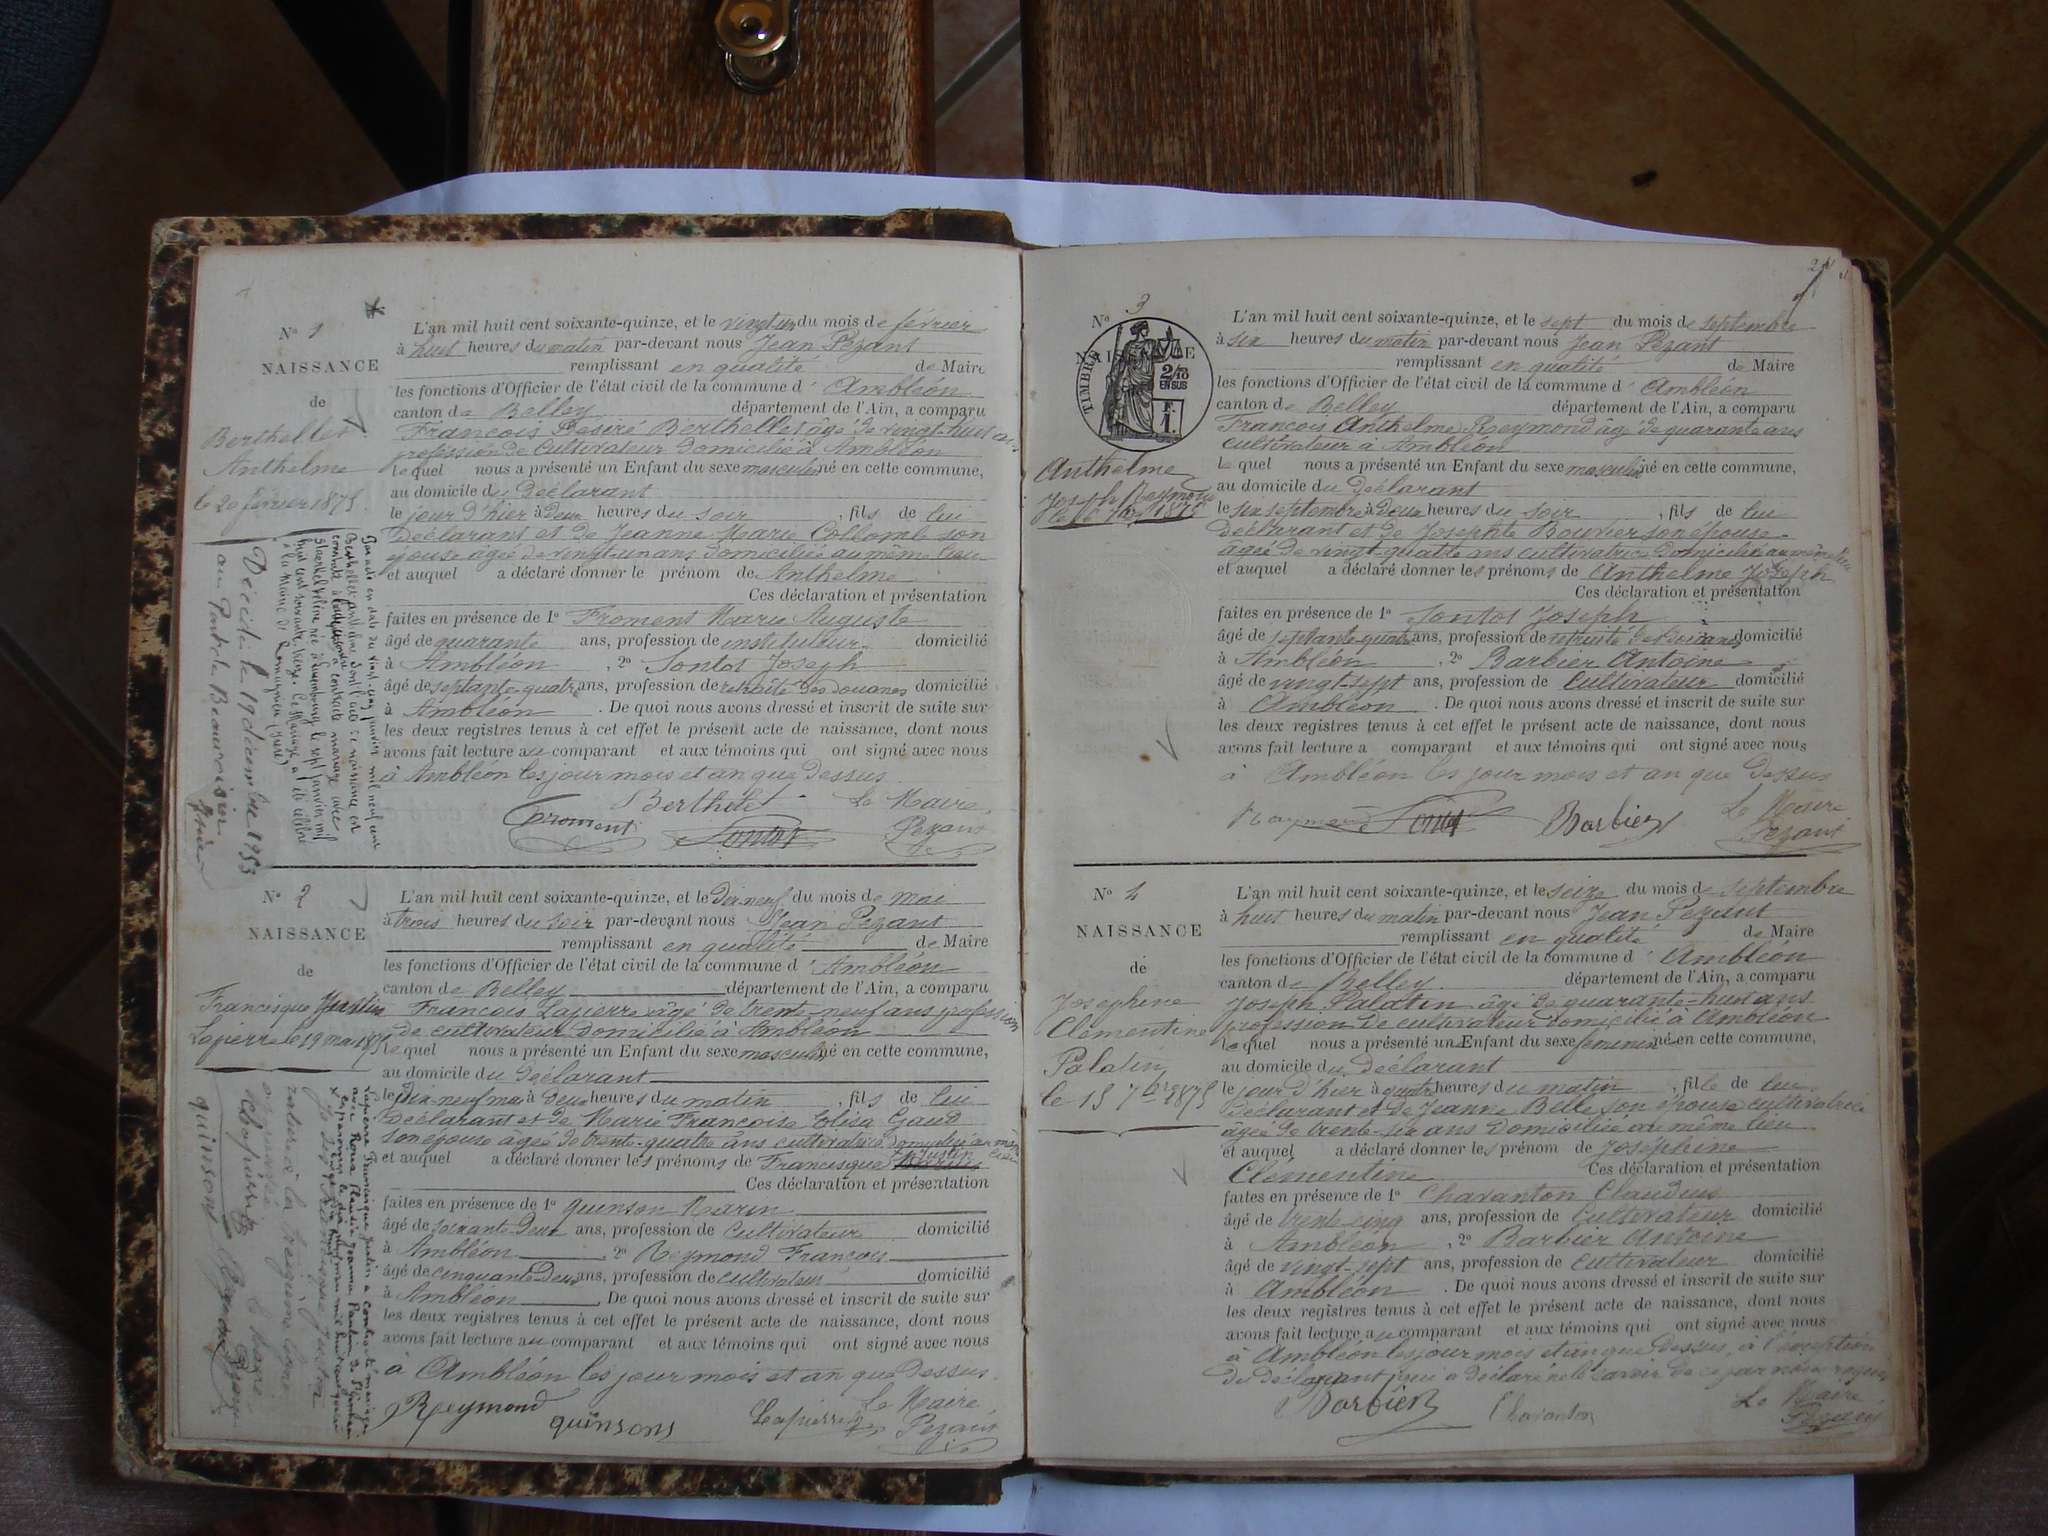 Nº 1
NAISSANCE
de
Berthellet
Anthelme
le 20 février 1875
L'an mil huit cent soixante-quinze, et le vingt un du mois de février
à huit heures du matin par-devant nous Jean Pezant
remplissant en qualité de Maire
les fonctions d'Officier de l'état civil de la commune d' Ambléon
canton de Belley département de l'Ain, a comparu
François Desiré Berthellet âgé de vingt-huit ans
profession de Cultivateur domicilié à Ambléon
lequel nous a présenté un Enfant du sexe masculin né en cette commune,
au domicile du Déclarant
le jour d'hier à deux heures du soir, fils de lui
Déclarant et de Jeanne Marie Collomb son
épouse agée de vingt-un ans domiciliée au même lieu
et auquel a déclaré donner le prénom de Anthelme
Ces déclaration et présentation
faites en présence de 1º Froment Marie Auguste
âgé de quarante ans, profession de instituteur domicilié
à Ambléon, 2º Tontot Joseph
âgé de septante-quatre ans, profession de retraité des douanes domicilié
à Ambléon. De quoi nous avons dressé et inscrit de suite sur
les deux registres tenus à cet effet le présent acte de naissance, dont nous
avons fait lecture au comparant et aux témoins qui ont signé avec nous
à Ambléon les jour mois et an que dessus
Berthelet Le Maire
Froment Tontot Pezant
Décédé le 19 décembre 1953
au Pont de Beauvoisin
Isère
Nº 2
NAISSANCE
de
Francisque Justin
Lapierre le 19 mai 1875
L'an mil huit cent soixante-quinze, et le Dix neuf du mois de Mai
à trois heures du soir par-devant nous Jean Pezant
remplissant en qualité de Maire
les fonctions d'Officier de l'état civil de la commune d' Ambléon
canton de Belley département de l'Ain, a comparu
François Lapierre agé de trente-neuf ans profession
de cultivateur domicilié à Ambléon
lequel nous a présenté un Enfant du sexe masculin né en cette commune,
au domicile du déclarant
le Dix neuf mai à Deux heures du matin, fils de lui
Déclarant et de Marie Françoise Elisa Gaud
son épouse agée de trente-quatre ans cultivatrice domiciliée au même lieu
et auquel a déclaré donner les prénoms de Francisque Justin
Ces déclaration et présentation
faites en présence de 1º quinson Marin
âgé de soixante Deux ans, profession de Cultivateur domicilié
à Ambléon, 2º Reymond François
âgé de cinquante Deux ans, profession de cultivateur domicilié
à Ambléon. De quoi nous avons dressé et inscrit de suite sur
les deux registres tenus à cet effet le présent acte de naissance, dont nous
avons fait lecture au comparant et aux témoins qui ont signé avec nous
à Ambléon les jour mois et an que Dessus.
Le Maire
Reymond quinsons Lapierre Pezant
quinsons
2
Nº 3
NAISSANCE
TIMBRE
2/10
EN SUS
F.
1.
Anthelme
Joseph Reymond
L'an mil huit cent soixante-quinze, et le sept du mois de septembre
à six heures du matin par-devant nous Jean Pezant
remplissant en qualité de Maire
les fonctions d'Officier de l'état civil de la commune d' Ambléon
canton de Belley département de l'Ain, a comparu
François Anthelme Reymond âgé de quarante ans
cultivateur à Ambléon
lequel nous a présenté un Enfant du sexe masculin né en cette commune,
au domicile du Déclarant
le six septembre à Deux heures du soir, fils de lui
Déclarant et de Josephte Bouvier son épouse
âgée de vingt-quatre ans cultivatrice domiciliée au même lieu
et auquel a déclaré donner les prénoms de Anthelme Joseph
Ces déclaration et présentation
faites en présence de 1º Tontot Joseph
âgé de septante-quatre ans, profession de retraité des douanes domicilié
à Ambléon, 2º Barbier Antoine
âgé de vingt-sept ans, profession de Cultivateur domicilié
à Ambléon. De quoi nous avons dressé et inscrit de suite sur
les deux registres tenus à cet effet le présent acte de naissance, dont nous
avons fait lecture a comparant et aux témoins qui ont signé avec nous
à Ambléon les jour mois et an que Dessus
Raymond Tontot Barbier Le Maire
Pezant
Nº 4
NAISSANCE
de
Josephine
Clémentine
Palatin
le 15 7bre 1875
L'an mil huit cent soixante-quinze, et le seize du mois de septembre
à huit heures du matin par-devant nous Jean Pezant
remplissant en qualité de Maire
les fonctions d'Officier de l'état civil de la commune d' Ambléon
canton de Belley département de l'Ain, a comparu
Joseph Palatin âgé de quarante-huit ans
profession de cultivateur domicilié à Ambléon
lequel nous a présenté un Enfant du sexe feminin né en cette commune,
au domicile du Déclarant
le jour d'hier à quatre heures du matin, fille de lui
Déclarant et de Jeanne Belle son épouse cultivatrice
âgée de trente-six ans domiciliée au même lieu
et auquel a déclaré donner les prénom de Joséphine
Clémentine Ces déclaration et présentation
faites en présence de 1º Charanton Claudius
âgé de trente cinq ans, profession de Cultivateur domicilié
à Ambléon, 2º Barbier Antoine
âgé de vingt-sept ans, profession de cultivateur domicilié
à Ambléon. De quoi nous avons dressé et inscrit de suite sur
les deux registres tenus à cet effet le présent acte de naissance, dont nous
avons fait lecture au comparant et aux témoins qui ont signé avec nous
à Ambléon les jour mois et an que Dessus, à l'exception
du déclarant qui a déclaré ne le savoir de ce par nous requis
Barbier Charanton Le Maire
Pezant